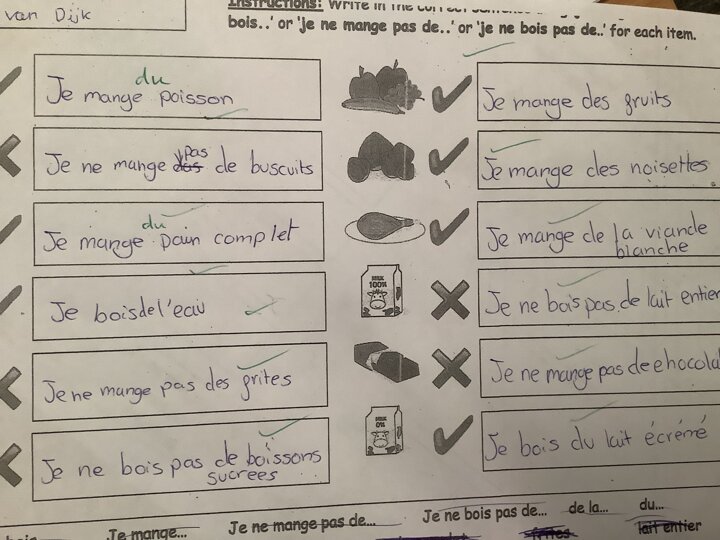 van Dijk
Instructions: Write in the correct
bois..' or 'je ne mange pas de..' or 'je ne bois pas de..' for each item.
du
Je mange poisson
Je mange des fruits
pas
Je ne mange de buscuits
Je mange des noisettes
du
Je mange pain complet
Je mange de la viande
blanche
MILK
100%
Je bois de l'eau
Je ne bois pas de lait entier
Je ne mange pas des frites
Je ne mange pas de chocolat
MILK
0%
Je ne bois pas de boissons
sucrees
Je bois du lait écrémé
Je mange... Je ne mange pas de... Je ne bois pas de... de la... du...
frites lait entier